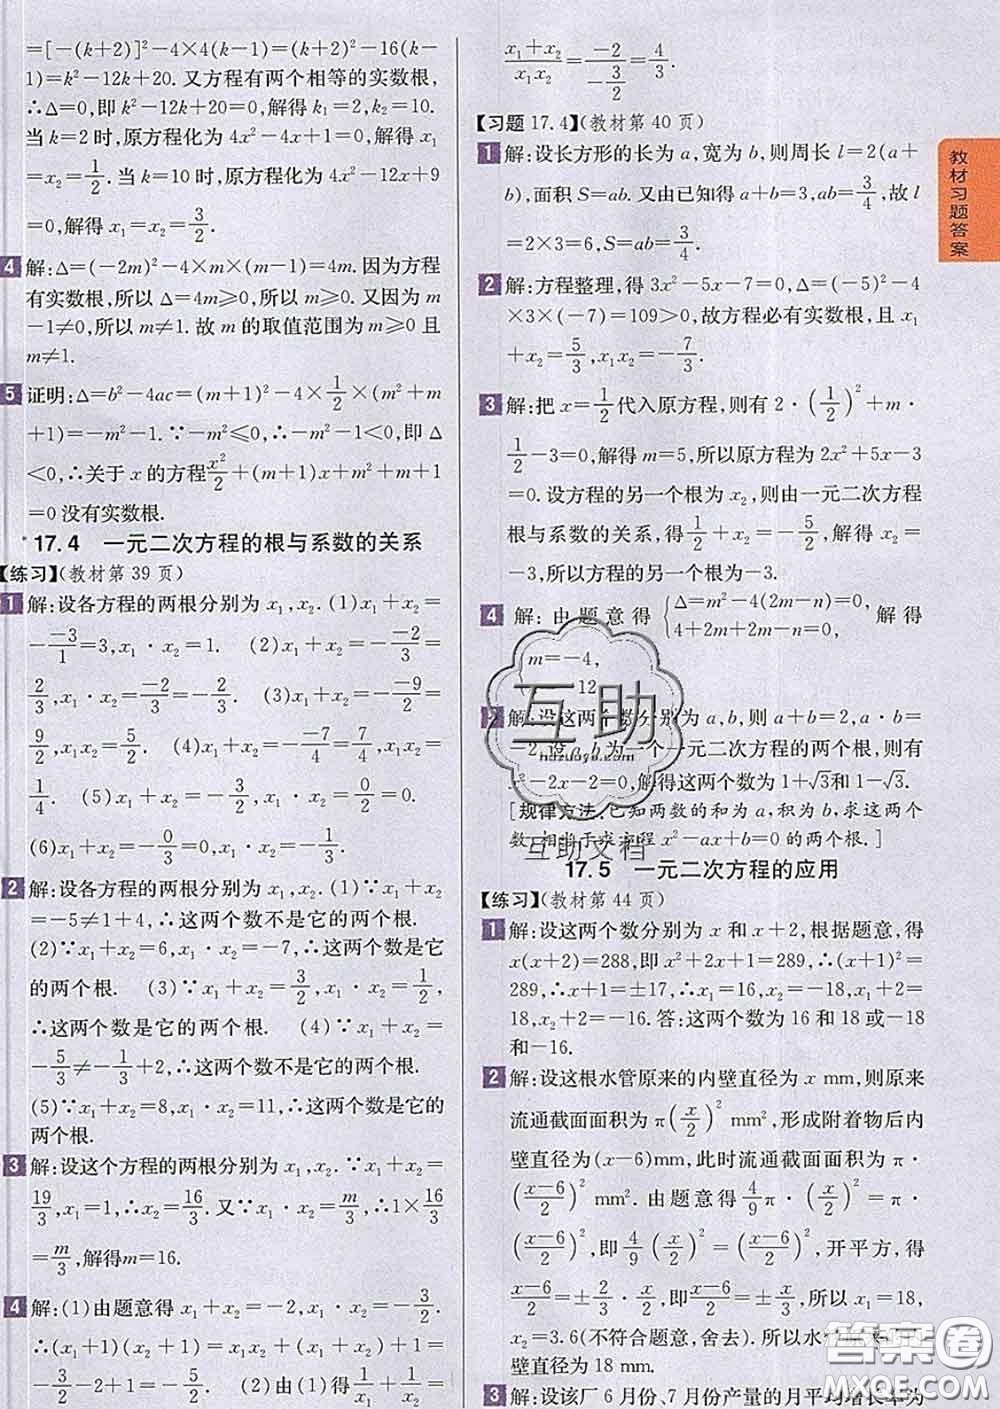 =[-(k+2)]²-4×4(k-1)=(k+2)²-16(k-
1)=k²-12k+20. 又方程有两个相等的实数根,
∴Δ=0,即 k²-12k+20=0,解得 k₁=2,k₂=10.
当 k=2 时,原方程化为 4x²-4x+1=0,解得 x₁
=x₂=1/2. 当 k=10 时,原方程化为 4x²-12x+9
=0,解得 x₁=x₂=3/2.
4 解:Δ=(-2m)²-4×m×(m-1)=4m. 因为方程
有实数根,所以 Δ=4m≥0,所以 m≥0. 又因为 m
-1≠0,所以 m≠1. 故 m 的取值范围为 m≥0 且
m≠1.
5 证明:Δ=b²-4ac=(m+1)²-4×1/2×(m²+m
+1)=-m²-1. ∵-m²≤0,∴-m²-1<0,即 Δ
<0,∴关于 x 的方程x²/2+(m+1)x+m²+m+1
=0 没有实数根.
17.4 一元二次方程的根与系数的关系
【练习】(教材第 39 页)
1 解:设各方程的两根分别为 x₁,x₂. (1)x₁+x₂=
-(-3)/1=3,x₁·x₂=1. (2)x₁+x₂=-(-2)/3=
2/3,x₁·x₂=(-2)/3=-2/3. (3)x₁+x₂=-(-9)/2=
9/2,x₁x₂=5/2. (4)x₁+x₂=-(-7)/4=7/4,x₁x₂=
1/4. (5)x₁+x₂=-(-3)/2=3/2,x₁x₂=0/2=0.
(6)x₁+x₂=-0/3=0,x₁x₂=-1/3.
2 解:设各方程的两根分别为 x₁,x₂. (1)∵x₁+x₂=
-5≠1+4,∴这两个数不是它的两个根.
(2)∵x₁+x₂=6,x₁·x₂=-7,∴这两个数是它
的两个根. (3)∵x₁+x₂=3/2,x₁·x₂=1/2,
∴这两个数是它的两个根. (4)∵x₁+x₂=
-5/3≠-1/3+2,∴这两个数不是它的两个根.
(5)∵x₁+x₂=8,x₁x₂=11,∴这两个数是它的
两个根.
3 解:设这个方程的两根分别为 x₁,x₂. ∵x₁+x₂=
19/3,x₁=1,∴x₂=16/3. 又∵x₁x₂=m/3,∴1×16/3
=m/3,解得m=16.
4 解:(1)由题意得 x₁+x₂=-2,x₁·x₂=-3/2.
∴(x₁+1)(x₂+1)=x₁x₂+(x₁+x₂)+1=
-3/2-2+1=-5/2. (2)由(1)得1/x₁+1/x₂=
(x₁+x₂)/(x₁x₂)=(-2)/(-3/2)=4/3.
【习题 17.4】(教材第 40 页)
1 解:设长方形的长为 a,宽为 b,则周长 l=2(a+
b),面积 S=ab. 又由已知得 a+b=3,ab=3/4,故 l
=2×3=6,S=ab=3/4.
2 解:方程整理,得 3x²-5x-7=0,Δ=(-5)²-4
×3×(-7)=109>0,故方程必有实数根,且 x₁
+x₂=5/3,x₁x₂=-7/3.
3 解:把 x=1/2代入原方程,则有 2·(1/2)²+m·
1/2-3=0,解得 m=5,所以原方程为 2x²+5x-3
=0. 设方程的另一个根为 x₂,则由一元二次方程
根与系数的关系,得1/2+x₂=-5/2,解得 x₂=
-3,所以方程的另一个根为-3.
4 解:由题意得{Δ=m²-4(2m-n)=0,
4+2m+2m-n=0, 解得
m=-4,
12
解:设这两个数分别为 a,b,则 a+b=2,a·b=
-2,设 a,b 为一个一元二次方程的两个根,则有
x²-2x-2=0,解得这两个数为 1+√3和 1-√3.
[规律方法:已知两数的和为 a,积为 b,求这两个
数,相当于求方程 x²-ax+b=0 的两个根.]
17.5 一元二次方程的应用
【练习】(教材第 44 页)
1 解:设这两个数分别为 x 和 x+2,根据题意,得
x(x+2)=288,即 x²+2x+1=289,∴(x+1)²=
289,∴x+1=±17,∴x₁=16,x₂=-18,x₁+2=
18,x₂+2=-16. 答:这两个数为 16 和 18 或-18
和-16.
2 解:设这根水管原来的内壁直径为 x mm,则原来
流通截面面积为 π(x/2)² mm²,形成附着物后内
壁直径为(x-6)mm,此时流通截面面积为 π·
((x-6)/2)² mm². 由题意得4/9π·(x/2)²=π·
((x-6)/2)²,即4/9(x/2)²=((x-6)/2)²,开平方,得
(x-6)/2=±2/3·x/2,即(x-6)/2=±x/3,所以 x₁=18,
x₂=3.6(不符合题意,舍去). 所以水
壁直径为 18 mm.
3 解:设该厂 6 月份、7 月份产量的月平均增长率为
教材习题答案
互助
hzzuoye.com
互助文档
答案圈
MXQE.COM